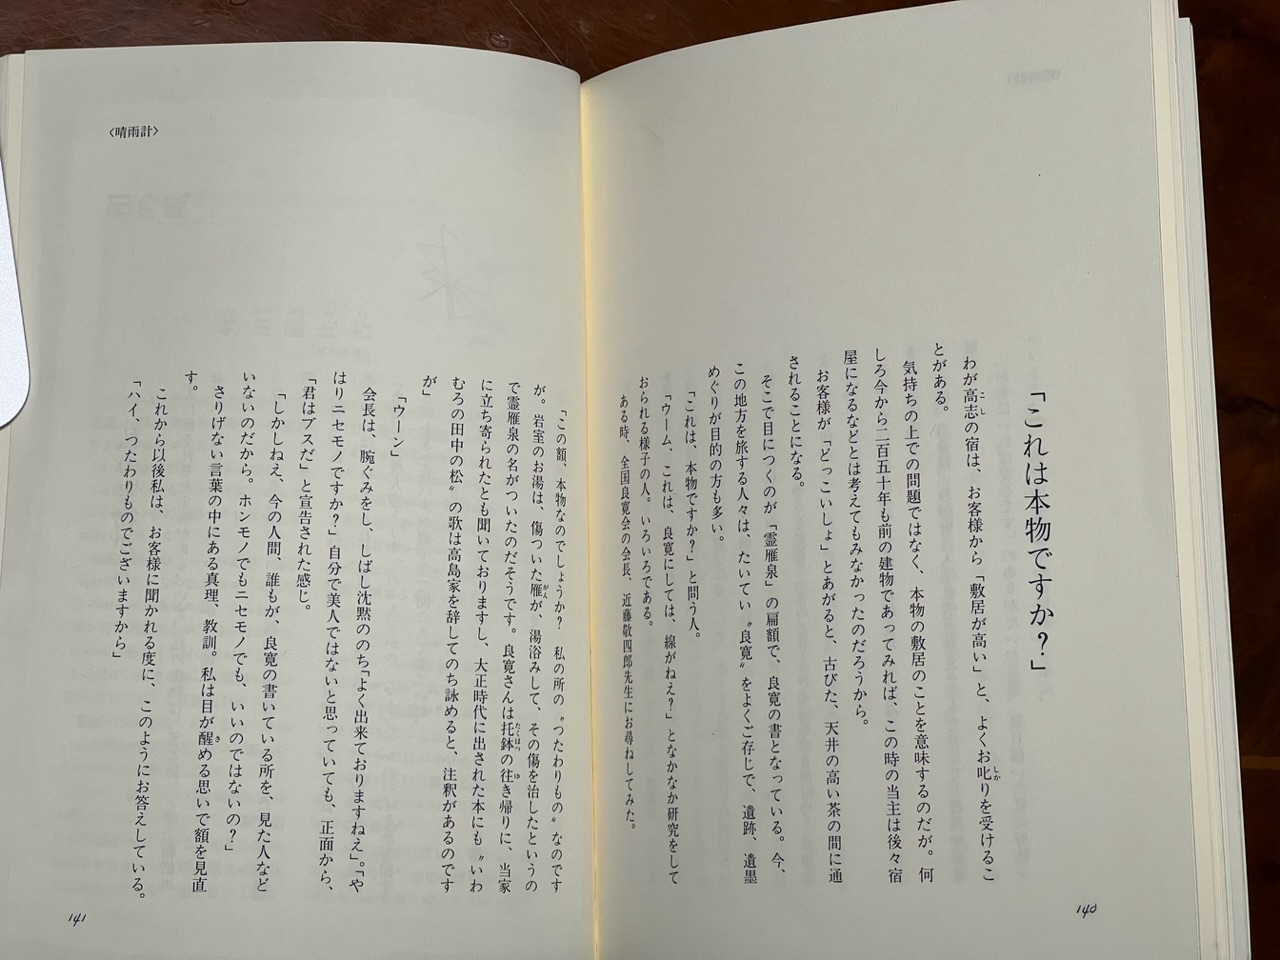 「これは本物ですか？」
わが高志の宿は、お客様から「敷居が高い」と、よくお叱りを受けるこ
とがある。
気持ちの上での問題ではなく、本物の敷居のことを意味するのだが。何
しろ今から二百五十年も前の建物であってみれば、この時の当主は後々宿
屋になるなどとは考えてもみなかったのだろうから。
お客様が「どっこいしょ」とあがると、古びた、天井の高い茶の間に通
されることになる。
そこで目につくのが「霊雁泉」の扁額で、良寛の書となっている。今、
この地方を旅する人々は、たいてい〝良寛〟をよくご存じで、遺跡、遺墨
めぐりが目的の方も多い。
「これは、本物ですか？」と問う人。
「ウーム、これは、良寛にしては、線がねえ？」となかなか研究をして
おられる様子の人。いろいろである。
ある時、全国良寛会の会長、近藤敬四郎先生にお尋ねしてみた。
140
〈晴雨計〉
「この額、本物なのでしょうか？　私の所の〝つたわりもの〟なのです
が。岩室のお湯は、傷ついた雁が、湯浴みして、その傷を治したというの
で霊雁泉の名がついたのだそうです。良寛さんは托鉢の往き帰りに、当家
に立ち寄られたとも聞いておりますし、大正時代に出された本にも〝いわ
むろの田中の松〟の歌は高島家を辞してのち詠めると、注釈があるのです
が」
「ウーン」
会長は、腕ぐみをし、しばし沈黙ののち「よく出来ておりますねえ」。「や
はりニセモノですか？」自分で美人ではないと思っていても、正面から、
「君はブスだ」と宣告された感じ。
「しかしねえ、今の人間、誰もが、良寛の書いている所を、見た人など
いないのだから。ホンモノでもニセモノでも、いいのではないの？」
さりげない言葉の中にある真理、教訓。私は目が醒める思いで額を見直
す。
これから以後私は、お客様に聞かれる度に、このようにお答えしている。
「ハイ、つたわりものでございますから」
141